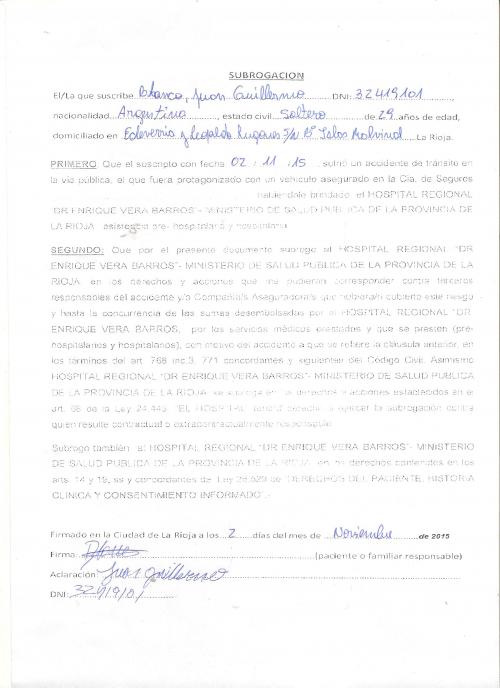 SUBROGACION
El/La que suscribe Blanco, Juan Guillermo DNI: 32419101
nacionalidad Argentino, estado civil Soltero de 29 años de edad,
domiciliado en Echeverria y Leopoldo Lugones S/N Bº Islas Malvinas La Rioja.
PRIMERO: Que el suscripto con fecha 02 / 11 / 15 sufrió un accidente de tránsito en
la vía pública, el que fuera protagonizado con un vehículo asegurado en la Cia. de Seguros
habiéndale brindado, el HOSPITAL REGIONAL
"DR ENRIQUE VERA BARROS"- MINISTERIO DE SALUD PUBLICA DE LA PROVINCIA DE
LA RIOJA asistencia pre- hospitalaria y hospitalaria.
SEGUNDO: Que por el presente documento subrogo al HOSPITAL REGIONAL "DR
ENRIQUE VERA BARROS"- MINISTERIO DE SALUD PUBLICA DE LA PROVINCIA DE LA
RIOJA en los derechos y acciones que me pudieran corresponder contra terceros
responsables del accidente y/o Compañía/s Aseguradora/s que hubiera/n cubierto este riesgo
y hasta la concurrencia de las sumas desembolsadas por el HOSPITAL REGIONAL "DR
ENRIQUE VERA BARROS, por los servicios médicos prestados y que se presten (pre-
hospitalarios y hospitalarios), con motivo del accidente a que se refiere la cláusula anterior, en
los términos del art. 768 inc.3, 771 concordantes y siguientes del Código Civil. Asimismo
HOSPITAL REGIONAL "DR ENRIQUE VERA BARROS"- MINISTERIO DE SALUD PUBLICA
DE LA PROVINCIA DE LA RIOJA se subroga en los derechos y acciones establecidos en el
art. 68 de la Ley 24.449. "EL HOSPITAL" tendrá derecho a ejercer la subrogación contra
quien resulte contractual o extracontractualmente responsable.
Subrogo también al HOSPITAL REGIONAL "DR ENRIQUE VERA BARROS"- MINISTERIO
DE SALUD PUBLICA DE LA PROVINCIA DE LA RIOJA en los derechos contenidos en los
arts. 14 y 19, ss y concordantes de Ley 26.529 de "DERECHOS DEL PACIENTE, HISTORIA
CLINICA Y CONSENTIMIENTO INFORMADO".-
Firmado en la Ciudad de La Rioja a los 2 días del mes de Noviembre de 2015
Firma: (paciente o familiar responsable)
Aclaración: Juan Guillermo
DNI: 32419101